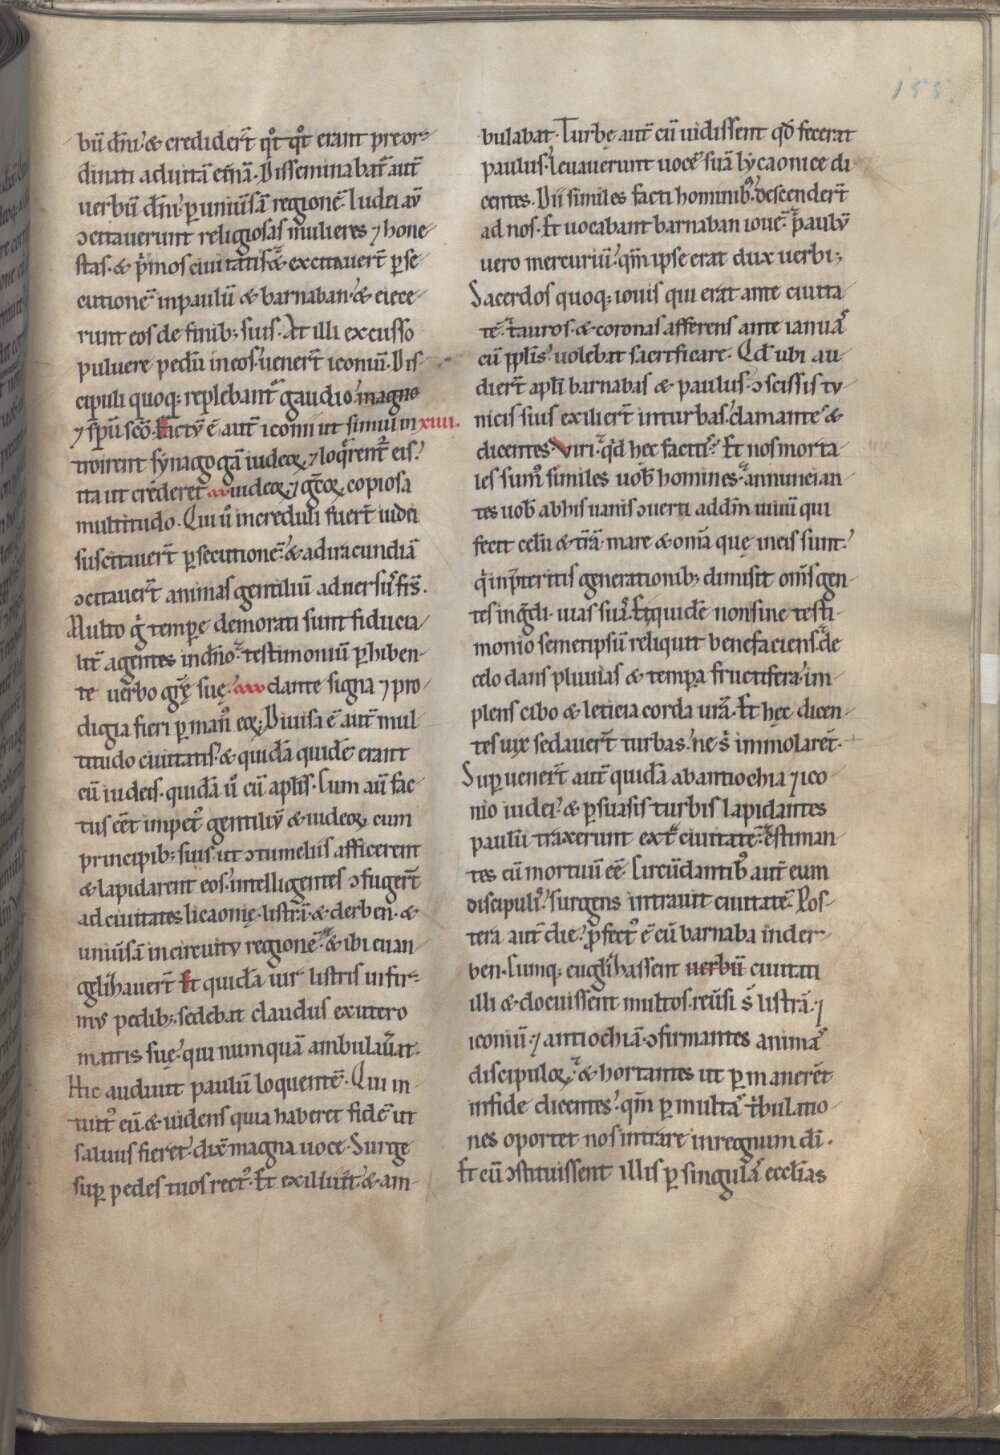 155
bū dn̄i· & crediderꝉ qͦt qͦt erant preor-
dinati ad uitā et̄nā. Disseminabat̄ aut̄
uerbū dn̄i ꝑ uniūsā regionē. Iudei aū
ↄcitauerunt religiosas mulieres ⁊ hone
stas· & p̄mos ciuitatis· & excitauer̄t ꝑse
cutionē in paulū & barnaban· & eiece-
runt eos de finib; suis. At illi excusso
puluere pedū in eos· uener̄t iconiū. Dis
cipuli quoq; replebant̄ gaudio magno
⁊ sp̄u sc̄o. Factū ē aut̄ iconii ut simul in xiiii.
troirent synagogā iudeoꝝ ⁊ loq̄rent̄ eis·
ita ut crēderet iudeoꝝ ⁊ grecoꝝ copiosa
multitudo. Qui ū increduli fuer̄t iudei
suscitauer̄t ꝑsecutionē· & ad iracundiā
ↄcitauer̄t animas gentiliū aduersus fr̄s.
Multo g̊ tempore demorati sunt fiducia
lit̄ agentes in dn̄o· testimoniū ꝑhiben-
te uerbo grę̄ suę· dante signa ⁊ pro
digia fieri ꝑ man̄ eoꝝ. Diuisa ē aut̄ mul
titudo ciuitatis· & quidā quidē erant
cū iudeis· quidā ū cū apl̄is. Cum aū fac
tus eēt impet̄ gentiliū & iudeoꝝ cum
principib; suis· ut ↄtumeliis afficerent
& lapidarent eos· intelligentes ↄfuger̄t
ad ciuitates licaonię· listrā· & derben· &
uniūsā in circuitu regionē· & ibi euan
geliz̄auer̄t Et quidā uir listris infir-
mus pedib; sedebat claudus ex utero
matris suę· qui numquā ambulau̅at.
Hic audiuit paulū loquentē. Qui in
tuit̄ eū· & uidens quia haberet fidē ut
saluus fieret· dix̄ magna uoce. Surge
suꝑ pedes tuos rect̄. Et exiliuit· & am-
bulabat. Turbę aut̄ cū uidissent qđ fecerat
paulus· leuauerunt uocē suā lycaonice di
centes. Dii similes facti hominib; descender̄t
ad nos. Et uocabant barnaban iouē· paulū
uero mercuriū· qm̄ ipse erat dux uerbi;
Sacerdos quoq; iouis qui erat ante ciuita
tē· tauros & coronas afferens ante ianuas
cū ppl̄is uolebat sacrificare. Qđ ubi au-
dier̄t apl̄i barnabas & paulus· ↄscissis tu
nicis suis exilier̄t in turbas· clamantes &
dicentes. Viri· qđ hec facitis? Et nos morta
les sum̄ similes uob̄ homines· annuncian
tes uob̄ ab his uanis ↄuerti ad dm̄ uiuū qui
fecit celū & tr̄ā· mare & om̄ia quę in eis sunt·
q̇ in p̄teritis generationib; dimisit om̄s gen
tes ingredi uias suas. Et quidē non sine testi
monio semetipsū reliquit benefaciens· de
celo dans pluuias & tempora fructifera· im
plens cibo & leticia corda ur̄a. Et hęc dicen
tes uix sedauer̄t turbas· ne s̄ immolarēt.
Suꝑuener̄t aut̄ quidā ab antiochia ⁊ ico
nio iudei· & ꝑsuasis turbis lapidantes
paulū traxerunt extͣ ciuitatē· ęstiman
tes eū mortuū eē. Circūdantib; aut̄ eum
discipulis· surgens intrauit ciuitatē. Pos-
tera aut̄ die· ꝓfect̄ ē cū barnaba in der-
ben. Cumq; eugl̄iz̄assent uerbū ciuitati
illi & docuissent multos· reūsi s̄ listrā· ⁊
iconiū· ⁊ antiochiā· ↄfirmantes animas
discipuloꝝ· & hortantes ut ꝑmanerēt
in fide dicentes· qm̄ ꝑ multas tribulatio
nes oportet nos intrare in regnum dī.
Et cū ↄstituissent illis ꝑ singulas ecclias